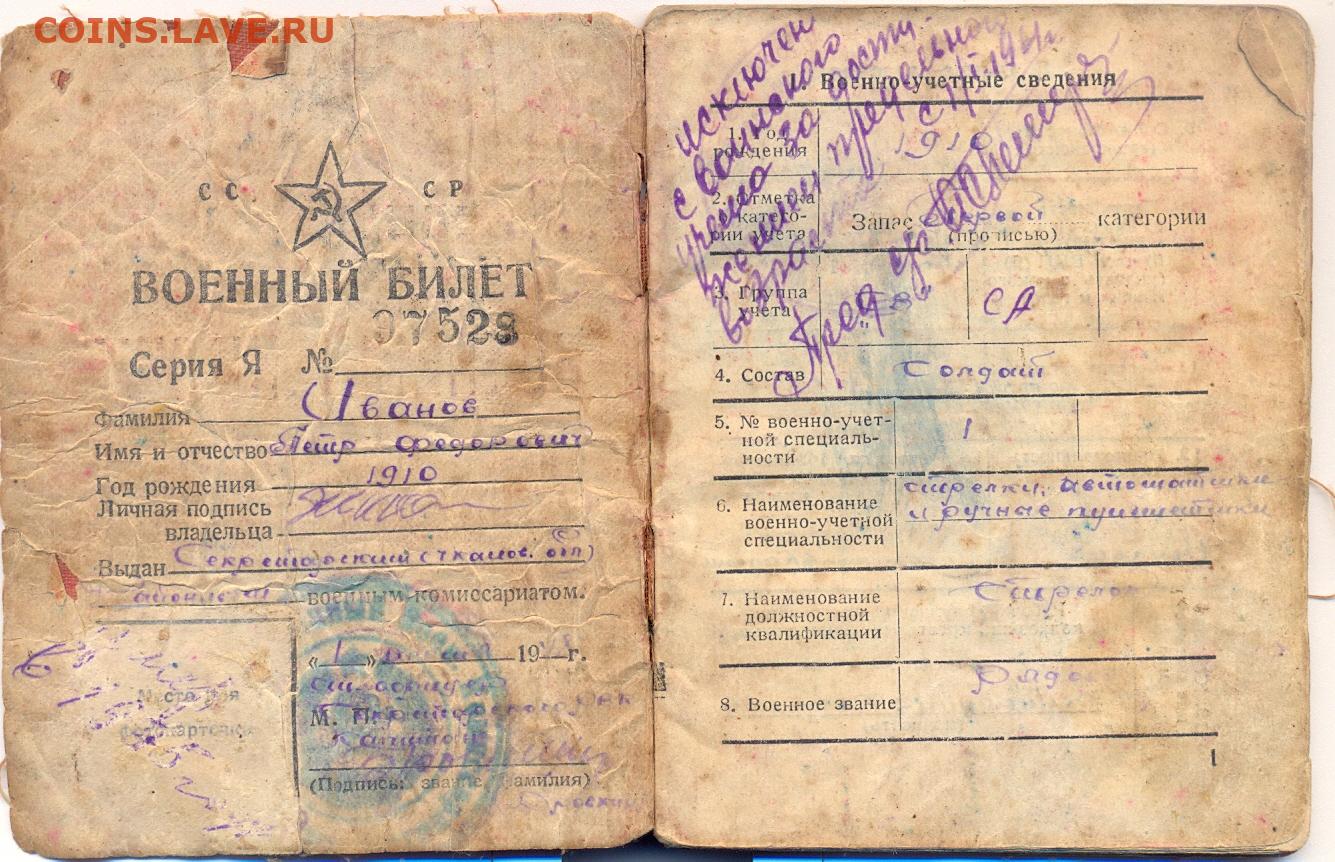 COINS.LAVE.RU
СС СР
ВОЕННЫЙ БИЛЕТ
97528
Серия Я №
Фамилия Иванов
Имя и отчество Петр Федорович
Год рождения 1910
Личная подпись
владельца
Выдан
военным комиссариатом.
«1» 19 г.
Место для
фотокарточки
М. П.
(Подпись: звание фамилия)
исключен
с воинского
учета за дости-
жением предельного
возраста с 1/I-1961г.
1. Военно-учетные сведения
1. Год
рождения 1910
2. Отметка
о катего-
рии учета Запас Первой категории
(прописью)
3. Группа
учета СА
4. Состав Солдат
5. № военно-учет-
ной специаль-
ности 1
6. Наименование
военно-учетной
специальности
стрелки, автоматчики
и ручные пулеметчики
7. Наименование
должностной
квалификации
Стрелок
8. Военное звание Рядо
1